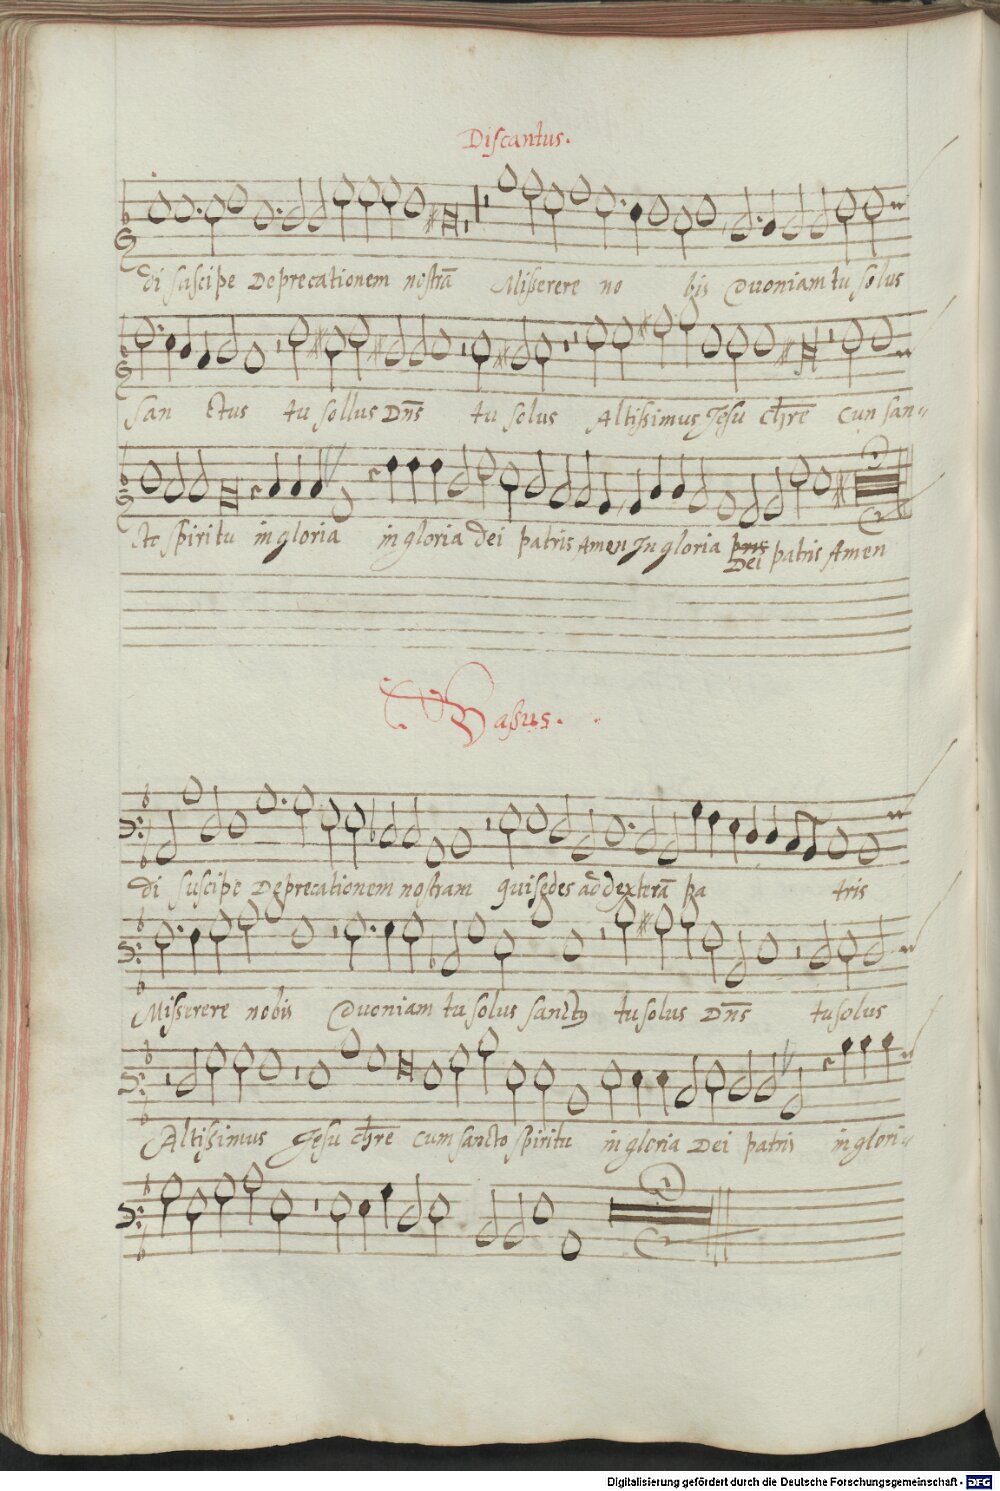 Discantus.
di suscipe Deprecationem nostrā Misserere no bis Quoniam tu solus
san ctus tu sollus Dn̄s tu solus Altissimus Jesu chr̄e cun san-
cto spiritu in gloria in gloria dei patris Amen In gloria pris patris Amen
Dei
Bassus.
di suscipe Deprecationem nostram qui sedes ad dexterā pa tris
Misserere nobis Quoniam tu solus sanctꝰ tu solus Dn̄s tu solus
Altissimus Jesu chr̄e cum sancto spiritu in gloria Dei patris in glori-
Digitalisierung gefördert durch die Deutsche Forschungsgemeinschaft - DFG